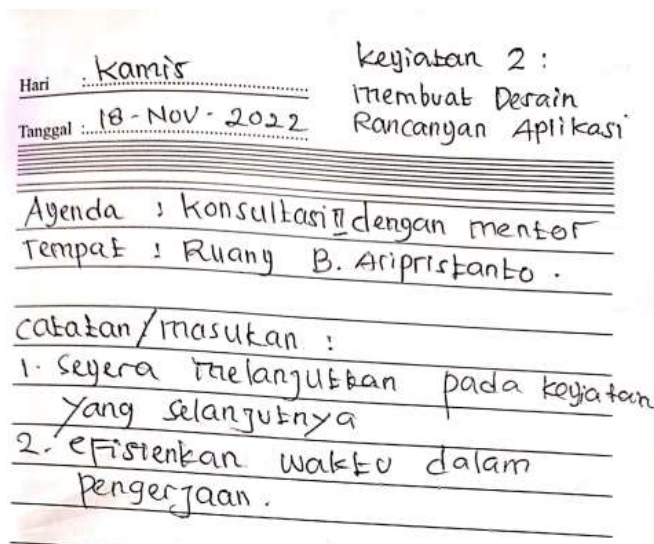 Hari : Kamis
Tanggal : 18 - Nov - 2022
kegiatan 2 :
membuat Desain
Rancangan Aplikasi
Agenda : Konsultasi II dengan mentor
Tempat : Ruang B. Aripristanto .
catatan/masukan :
1. Segera melanjutkan pada kegiatan
yang selanjutnya
2. efisienkan waktu dalam
pengerjaan .